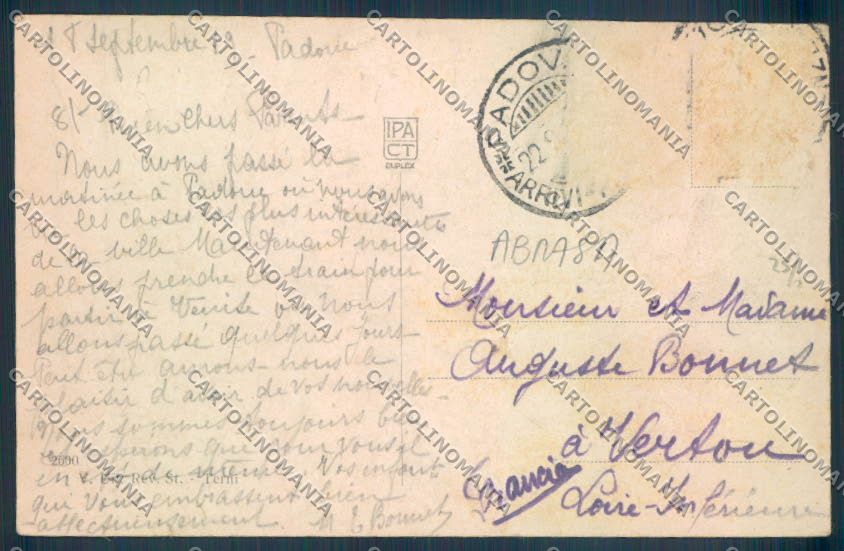 18 septembre Padoue
8/ Bien chers Parents
Nous avons passé la
matinée à Padoue où nous avons
les choses les plus intéressantes
de la ville Maintenant nous
allons prendre le train pour
partir à Venise où nous
allons passé quelques jours
Peut être aurons-nous le
plaisir d'avoir de vos nouvelles-
Nous sommes toujours
espérons que pour vous il
en est de même. Vos enfants
qui vous embrassent bien
affectueusement. M E Bonnet
2690
Rev. St. - Terni
IPA
CT
DUPLEX
PADOVA
22
ARRIVI
ABRASA
25/
Monsieur et Madame
Auguste Bonnet
à Vertou
Loire-Inférieure
Francia
CARTOLINOMANIA